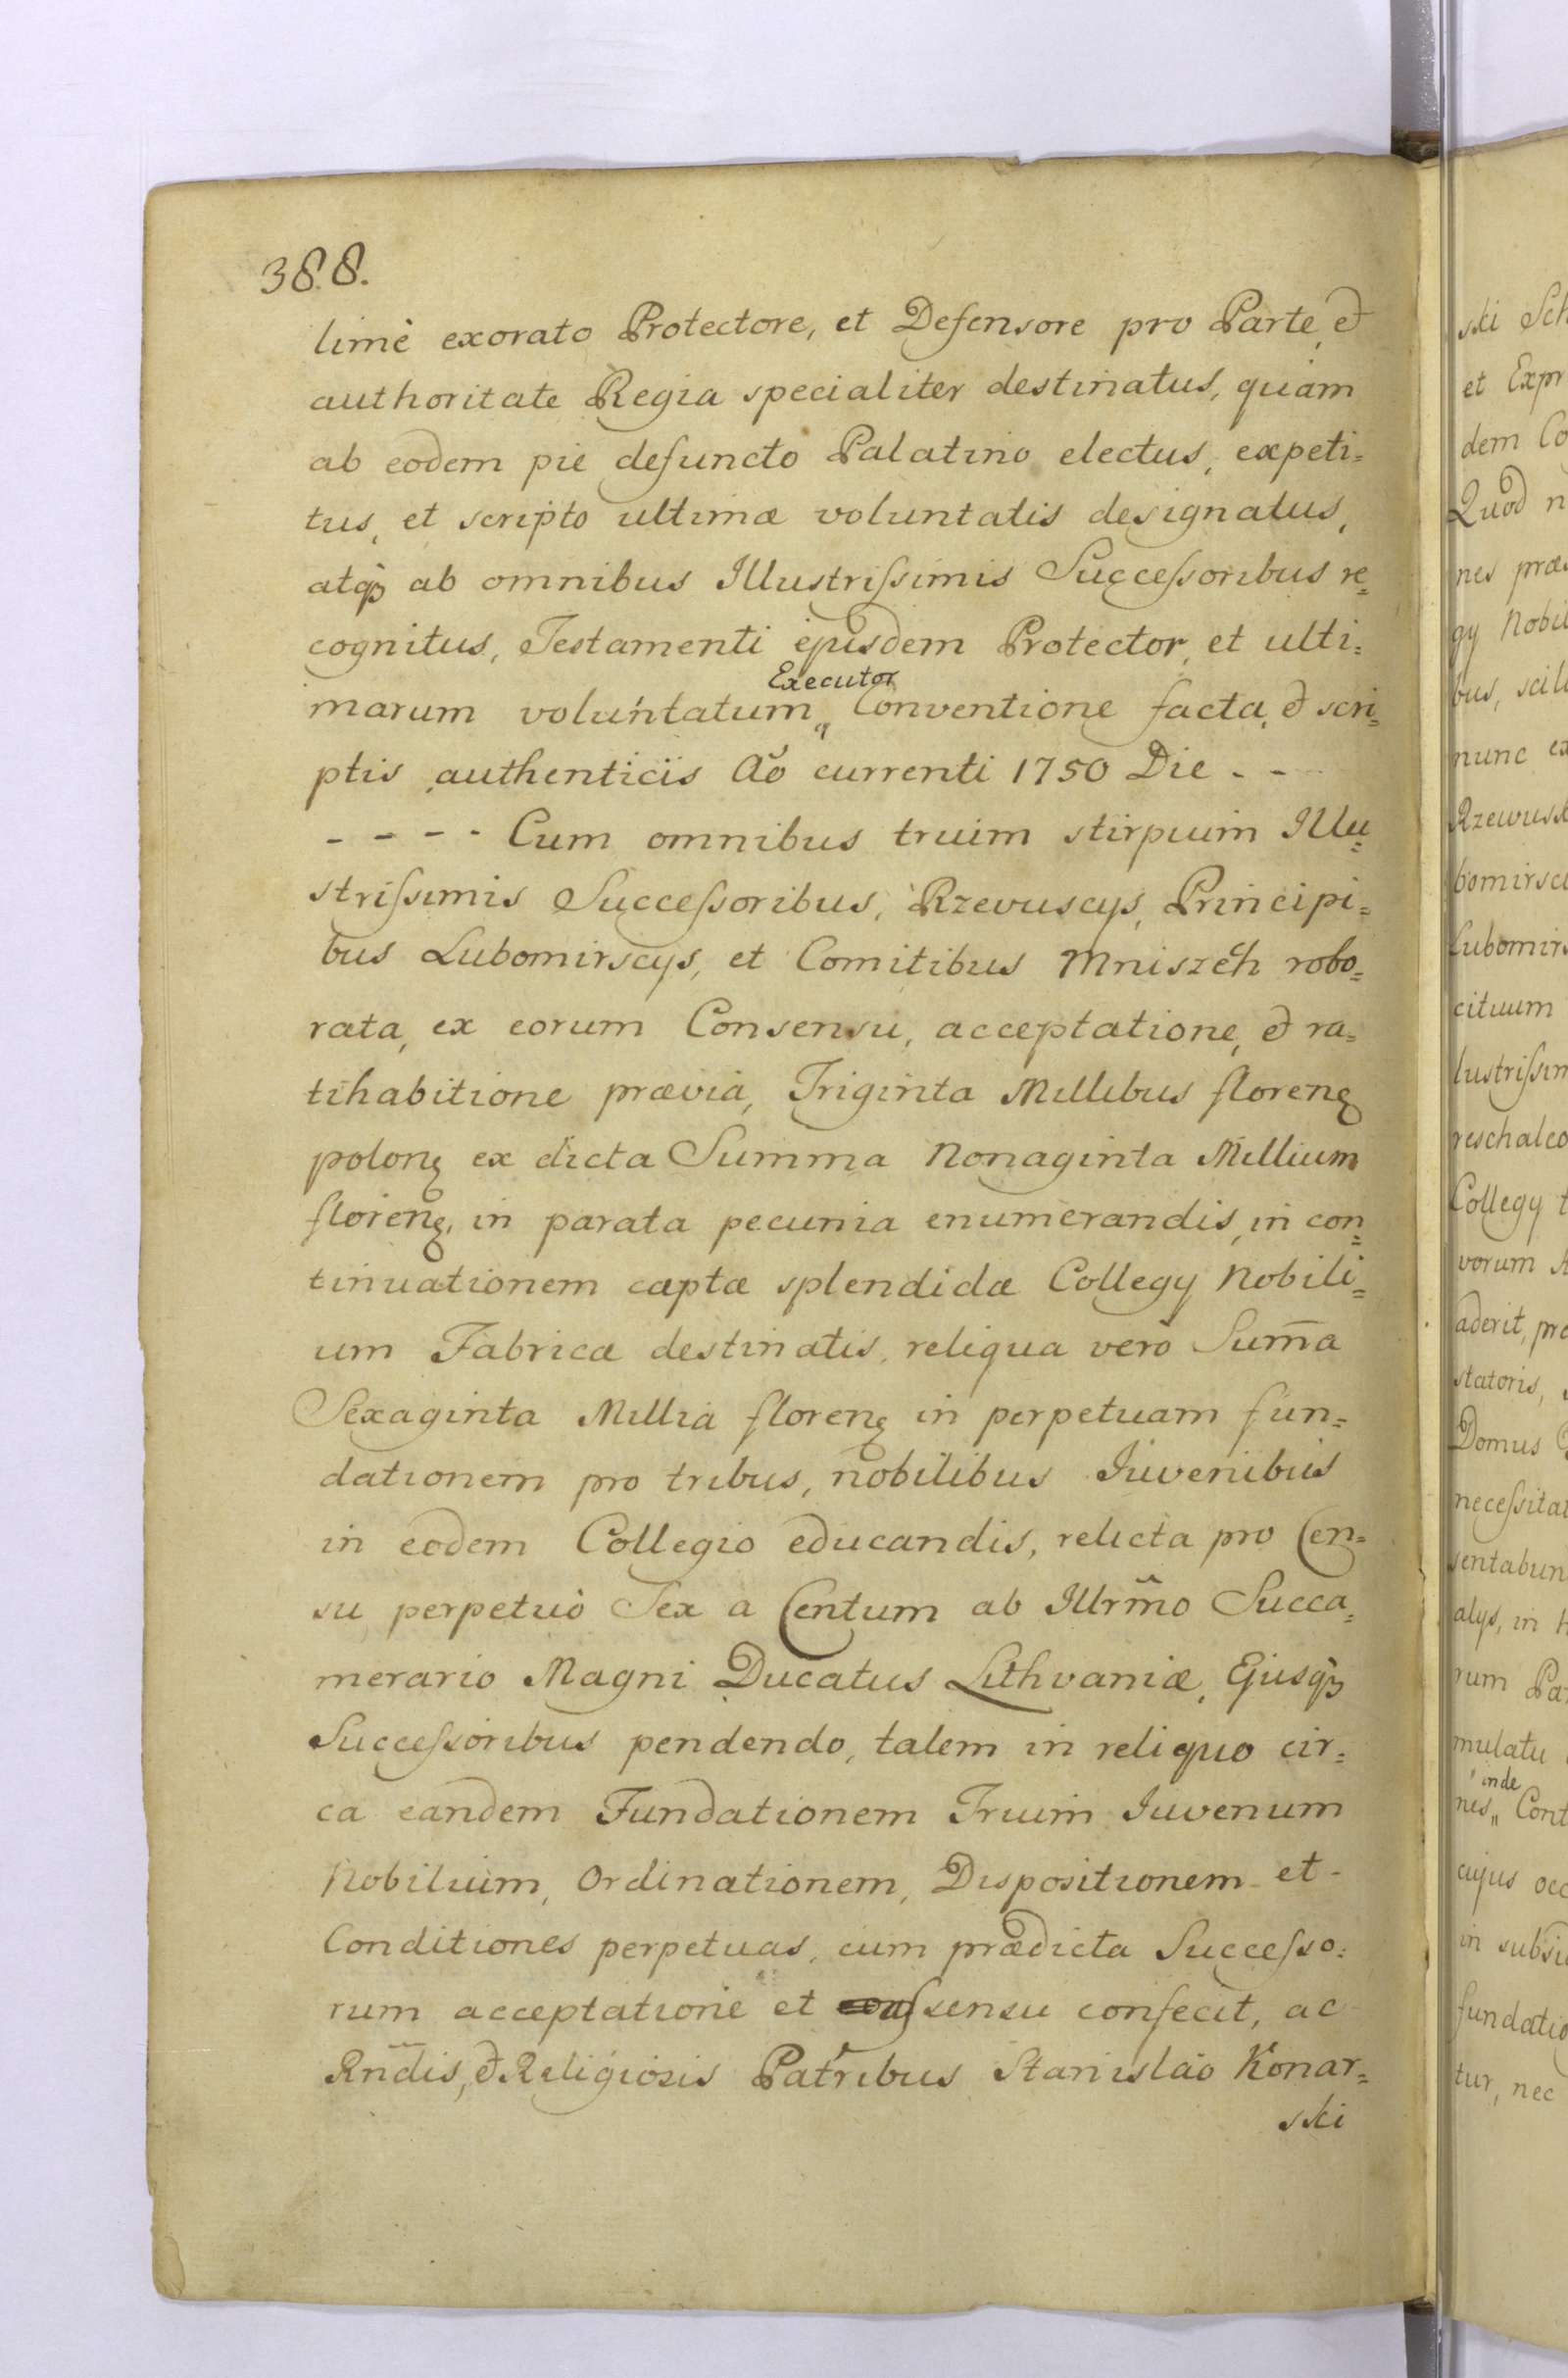 388.
limè exorato Protectore, et Defensore pro Parte, et
authoritate Regia specialiter destinatus, quàm
ab eodem piè defuncto Palatino electus, expeti=
tus, et scripto ultimæ voluntatis designatus,
atqȝ ab omnibus Illustrissimis Successoribus re=
cognitus, Testamenti ejusdem Protector, et ulti=
Executor
marum voluntatum„ Conventione facta, et scri=
ptis authenticis Aõ currenti 1750 Die - -
- - - - Cum omnibus trium stirpium Illu=
strissimis Successoribus, Rzevuscys, Principi=
bus Lubomirscys, et Comitibus Mniszech robo=
rata, ex eorum Consensu, acceptatione, et ra=
tihabitione prævia, Triginta Millibus florenꝫ
polonꝫ ex dicta Summa Nonaginta Millium
florenꝫ, in parata pecunia enumerandis, in con=
tinuationem captæ splendidæ Collegy Nobili=
um Fabricæ destinatis, reliqua verò Sum̃a
Sexaginta Millia florenꝫ in perpetuam fun=
dationem pro tribus, nobilibus Iuvenibus
in eodem Collegio educandis, relicta pro Cen=
su perpetuò Sex a Centum ab Illrm̃o Succa=
merario Magni Ducatus Lithvaniæ, Ejusqȝ
Successoribus pendendo, talem in reliquo cir=
ca eandem Fundationem Trium Iuvenum
Nobilium, Ordinationem, Dispositionem et -
Conditiones perpetuas, cum prædicta Successo=
rum acceptatione et assensu confecit, ac
Rñdis, et Religiosis Patribus Stanislao Konar=
ski
ski Sch
et Expr
dem Co
Quod n
nes præ
gy Nobil
bus, scili
nunc ex
Rzewusk
bomirsci
Lubomirs
cituum
lustrissim
reschalco
Collegy t
vorum
aderit, pro
statoris,
Domus
necessitat
sentabun
alys, in
rum Pa
mulatu
inde
nes„ Cont
cujus occ
in subsi
fundatio
tur, nec